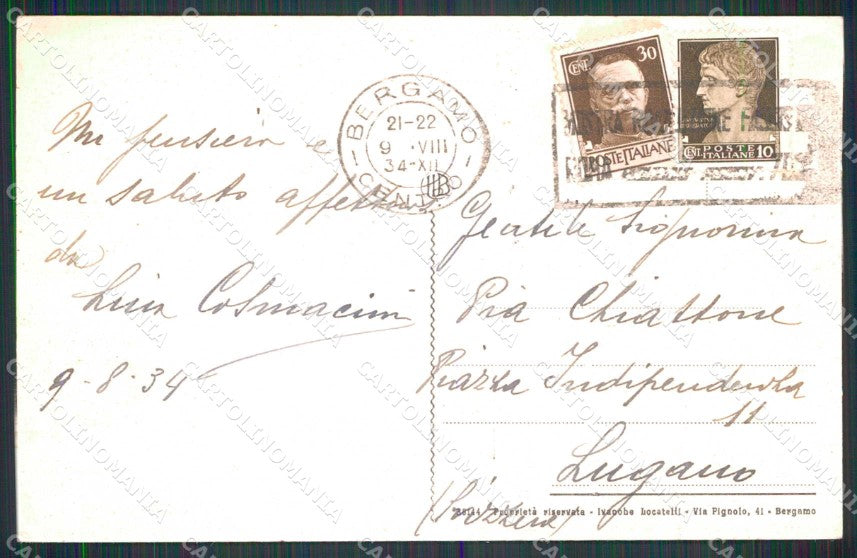 Un pensiero e
un saluto affett
da
Cosmacini
9-8-34
BERGAMO
21-22
9 · VIII
34-XII
CENTRO
CENT. 30
POSTE ITALIANE
POSTE ITALIANE
CENT. 10
Gentile Signorina
Pia Chiattone
Piazza Indipendenza
11
Lugano
(Svizzera)
Proprietà riservata - Ivanohe Locatelli - Via Pignolo, 41 - Bergamo
CARTOLINOMANIA